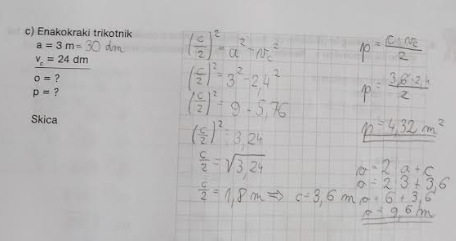 c) Enakokraki trikotnik
a = 3 m = 30 dm
v_c = 24 dm
o = ?
p = ?
Skica
(c/2)² = a² - v_c²
(c/2)² = 3² - 2,4²
(c/2)² = 9 - 5,76
(c/2)² = 3,24
c/2 = √3,24
c/2 = 1,8 m ⇒ c = 3,6 m
p = c · v_c / 2
p = 3,6 · 2,4 / 2
p = 4,32 m²
o = 2 a + c
o = 2 · 3 + 3,6
o = 6 + 3,6
o = 9,6 m